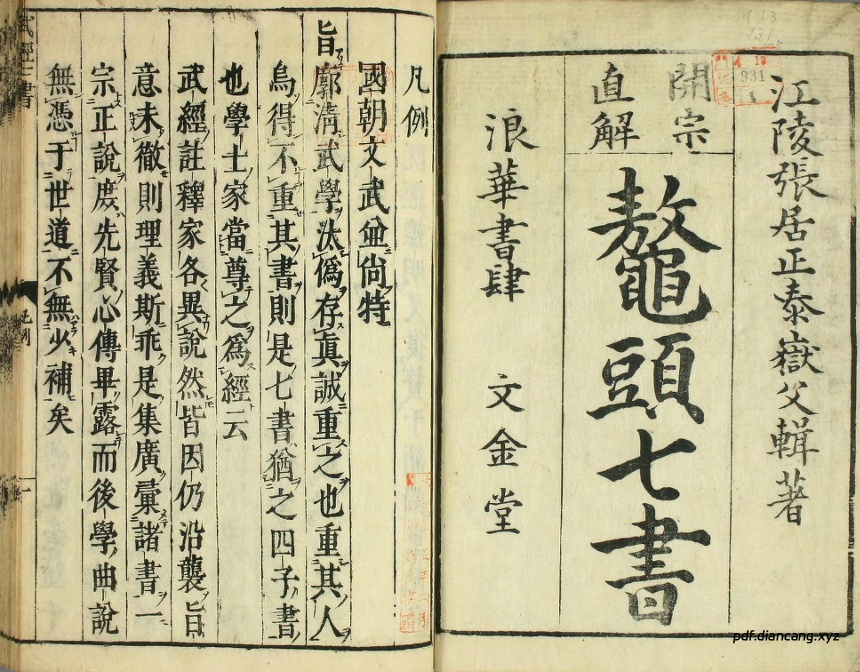 江陵張居正泰嶽父輯著
開宗
直解
鼇頭七書
浪華書肆 文金堂
凡例
國朝文武並尙特
旨廓淸武學汰僞存眞誠重之也重其人
烏得不重其書則是七書猶之四子書
也學士家當尊之爲經云
武經註釋家各異說然皆因仍沿襲旨
意未徹則理義斯乖是集廣彙諸書一
宗正說庶先賢心傳畢露而後學曲說
無憑于世道不無少補矣
武經七書
凡例
一
931
pdf.diancang.xyz